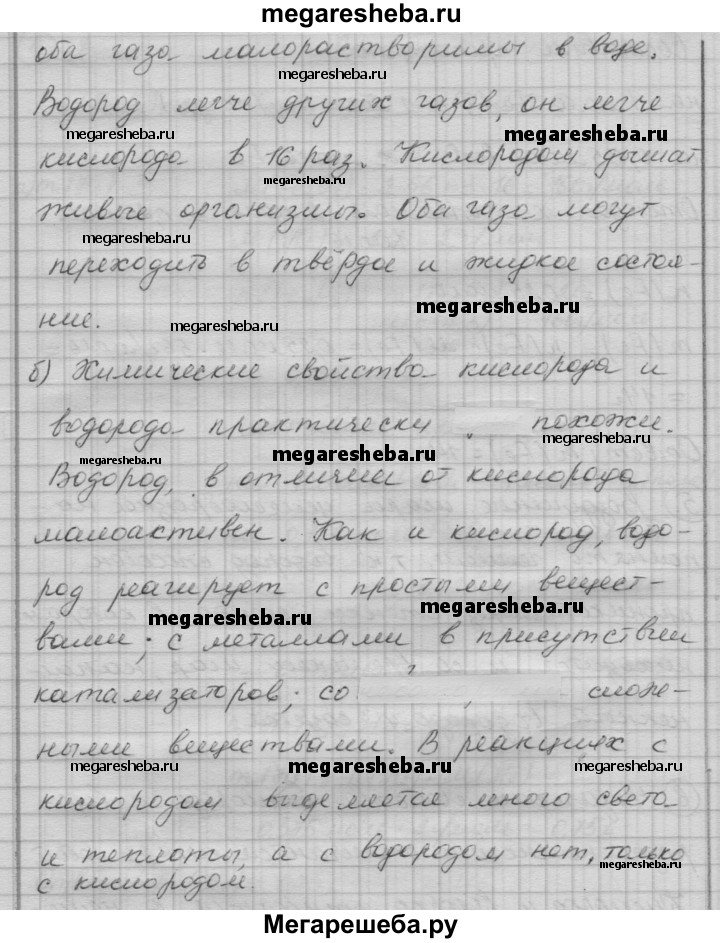 megaresheba.ru
оба газа малорастворимы в воде.
megaresheba.ru
Водород легче других газов, он легче
megaresheba.ru
megaresheba.ru
кислорода в 16 раз. Кислородом дышат
megaresheba.ru
живые организмы. Оба газа могут
megaresheba.ru
переходить в твёрдое и жидкое состоя-
megaresheba.ru
ние.
megaresheba.ru
б) Химические свойства кислорода и
водорода практически похожи.
megaresheba.ru
megaresheba.ru
megaresheba.ru
Водород, в отличии от кислорода
малоактивен. Как и кислород, водо-
род реагирует с простыми вещест-
megaresheba.ru
megaresheba.ru
вами; с металлами в присутствии
катализаторов; со слож-
ными веществами. В реакциях с
megaresheba.ru
megaresheba.ru
megaresheba.ru
кислородом выделяется много света
и теплоты, а с водородом нет, только
megaresheba.ru
с кислородом.
Мегарешеба.ру